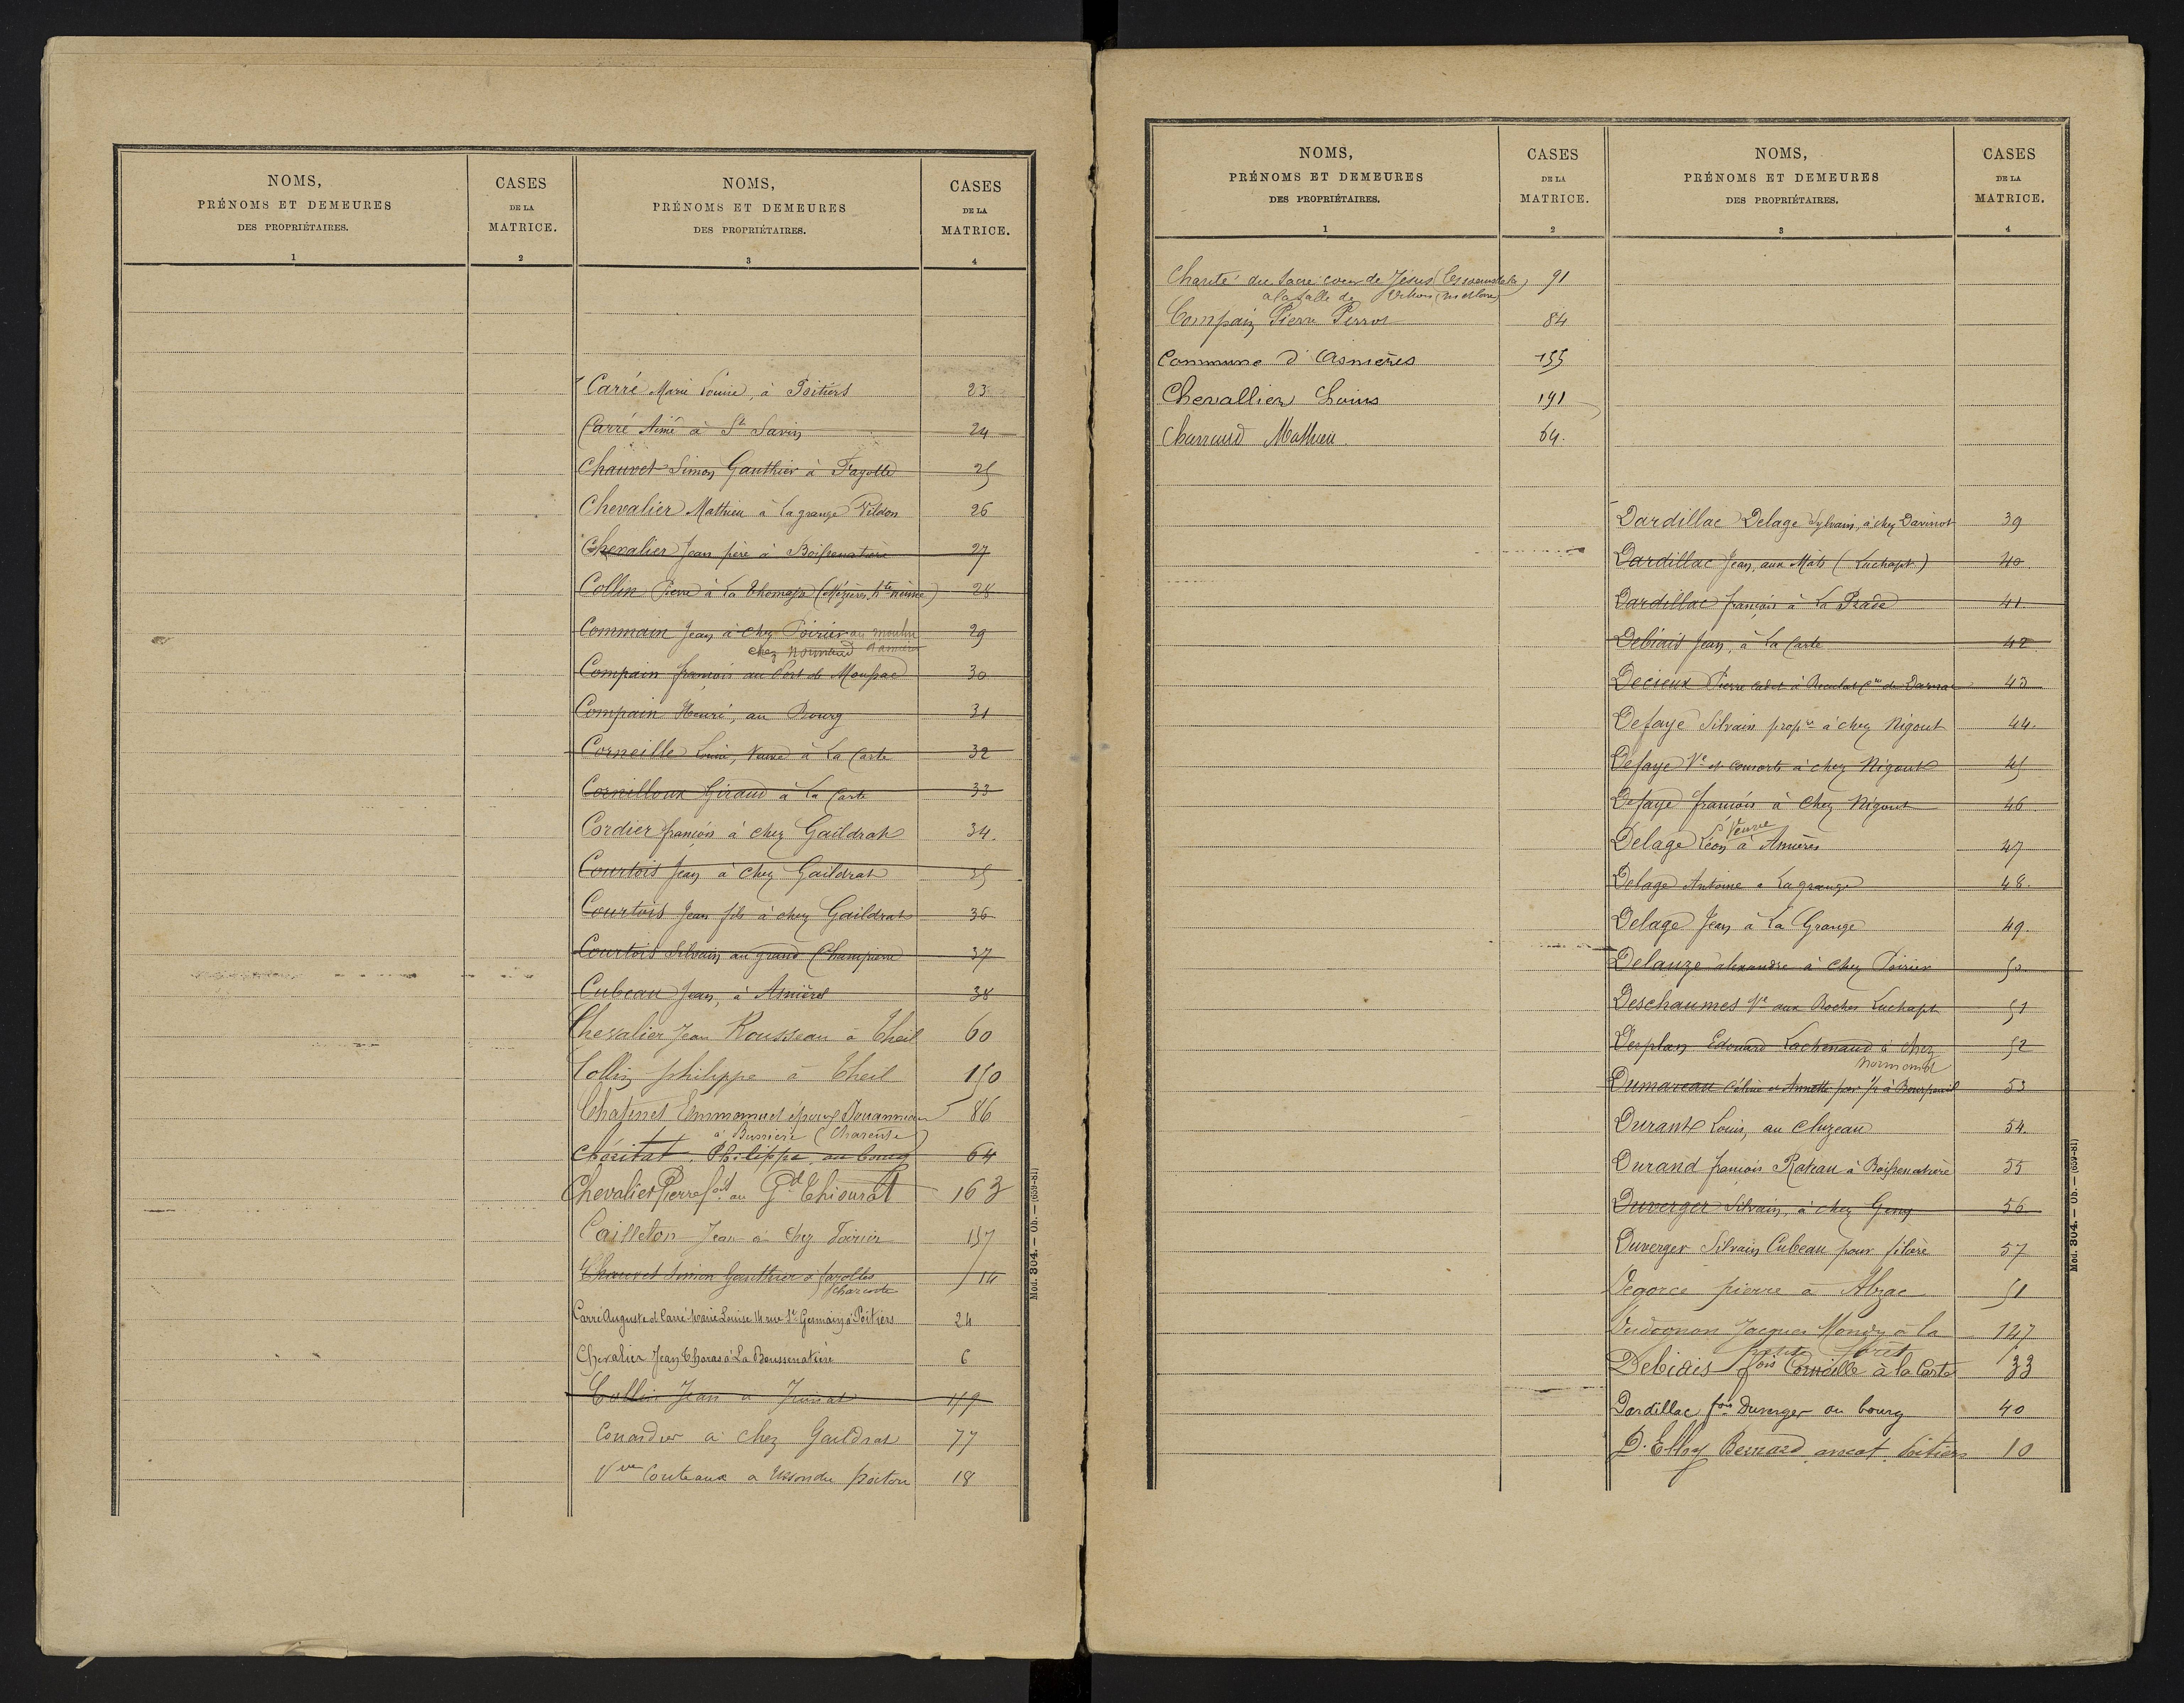 NOMS,
PRÉNOMS ET DEMEURES
DES PROPRIÉTAIRES.
1
CASES
DE LA
MATRICE.
2
NOMS,
PRÉNOMS ET DEMEURES
DES PROPRIÉTAIRES.
3
CASES
DE LA
MATRICE.
4
Carré Marie Louise, à Poitiers 23
Carré Aimé à St Savin 24
Chauvet Simon Gauthier à Fayolle 25
Chevalier Mathieu à Lagrange Vildon 26
Chevalier Jean père à Boissenatière 27
Collin Pierre à La Thomase (Mézières, hte vienne) 28
Commain Jean à chez Poirier au moulin 29
chez Normaud d'asnières
Compain françois au Port de Moussac 30
Compain Henri, au Bourg 31
Corneille Louis, Veuve à La Carte 32
Cornilloux Giraud à La Carte 33
Cordier françois à chez Gaildrat 34.
Courtois Jean à chez Gaildrat 35
Courtois Jean fils à chez Gaildrat 36
Courtois Silvain au grand Champierre 37
Cubeau Jean, à Asnières 38
Chevalier Jean Rousseau à Theil 60
Collin philippe à Theil 150
Chatinet Emmanuel époux Jouanneau 86
à Bussière (Charente)
Chéritat Philippe au bourg 64
Chevalier Pierre fois au Gd Chiourat 163
Cailleton Jean à chez Poirier 157
Chauvet Simon Gauthier à farolles 14
Charente
Carré Auguste et Carré Marie Louise 14 rue St Germain à Poitiers 24
Chevalier Jean Tharas à La Boussenatière 6
Collin Jean a 119
Couardier a chez Gaildrat 77
Vve Couteaux a Usson du poitou 18
Mod. 304. — Ob. — (659-81)
NOMS,
PRÉNOMS ET DEMEURES
DES PROPRIÉTAIRES.
1
CASES
DE LA
MATRICE.
2
NOMS,
PRÉNOMS ET DEMEURES
DES PROPRIÉTAIRES.
3
CASES
DE LA
MATRICE.
4
Charité du Sacré coeur de Jésus 91
a la salle de
Compain Pierre Perrot 84
Commune d'Asnières 155
Chevallier Louis 191
Charraud Mathieu 64.
Dardillac Delage Sylvain, à chez Davinot 39
Dardillac Jean, aux Mats (Luchapt) 40.
Dardillac françois à La Prade 41
Debiais Jean, à La Carte 42
Decieux Pierre cadet à Cne de Darnac 43
Defaye Silvain propre à chez Nigout 44.
Defaye Ve et consorts à chez Nigout 45
Defaye françois à Chez Nigout 46
Veuve
Delage Léon à Asnières 47
Delage Antoine a Lagrange 48.
Delage Jean à La Grange 49.
Delauze alexandre à chez Poirier 50
Deschaumes Ve aux Roches Luchapt 51
Desplan Edouard Lachenaud à chez 52
Normand
Dumareau Céline et Annette par 1/2 à 53
Durant Louis, au cluzeau 54.
Durand françois Rateau à Boissenatière 55
Duverger Silvain, à chez Geny 56
Duverger Silvain Cubeau pour filière 57
Degorce pierre à Abzac 51
Dudognon Jacques Mondy à la 127
petite foret
Debiais fois Corneille à la Carte 33
Dardillac fois Duverger au bourg 40
D. Bernard avocat Poitiers 10
Mod. 304. — Ob. — (659-81)